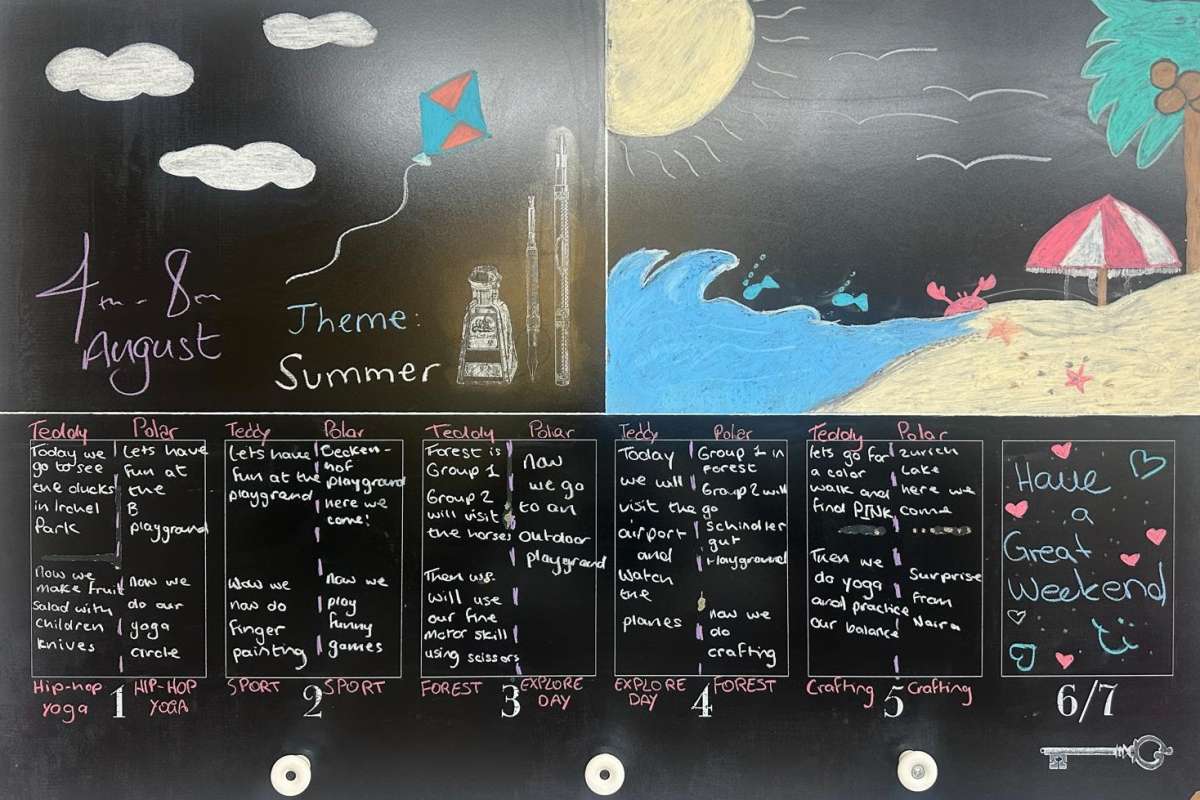 4th - 8th
August
Theme:
Summer
Teddy
Today we
go to see
the ducks
in Irchel
Park
Now we
make fruit
salad with
children
knives
Polar
Lets have
fun at
the
B
playground
Now we
do our
yoga
circle
Hip-hop
yoga
1
HIP-HOP
YOGA
Teddy
Lets have
fun at the
playground
Now we
now do
finger
painting
Polar
Becken-
hof
playground
here we
come!
Now we
play
funny
games
SPORT
2
SPORT
Teddy
Forest is
Group 1
Group 2
will visit
the horses
Then we
will use
our fine
motor skill
using scissors
Polar
Now
we go
to an
outdoor
playground
FOREST
3
EXPLORE
DAY
Teddy
Today
we will
visit the
airport
and
Watch
the
planes
Polar
Group 1 in
Forest
Group 2 will
go
Schindler
gut
Playground
now we
do
crafting
EXPLORE
DAY
4
FOREST
Teddy
lets go for
a color
walk and
find PINK
Then we
do yoga
and practice
our balance
Polar
Zurich
Lake
here we
come
Surprise
from
Naira
Crafting
5
Crafting
Have
a
Great
Weekend
6/7